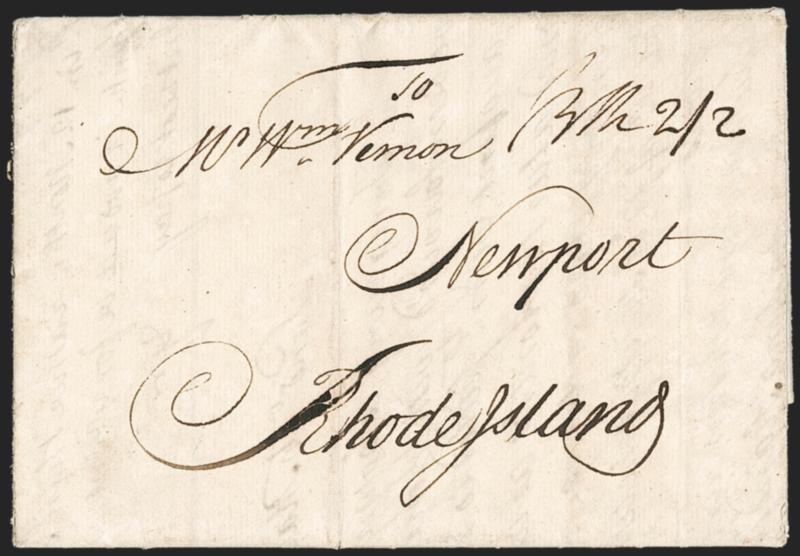 To
Mr Wm. Vernon 2/2
Newport
Rhode Island